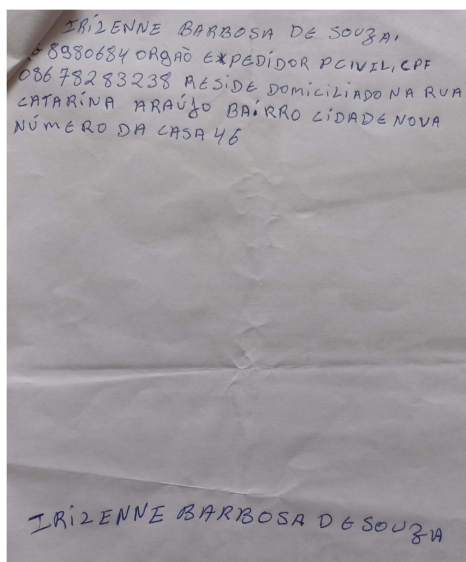 IRIZENNE BARBOSA DE SOUZA.
8980684 ORGAO EXPEDIDOR PCIVIL, CPF
08678283238 RESIDE DOMICILIADO NA RUA
CATARINA ARAÚJO BAIRRO CIDADE NOVA
NÚMERO DA CASA 46
IRIZENNE BARBOSA DE SOUZA